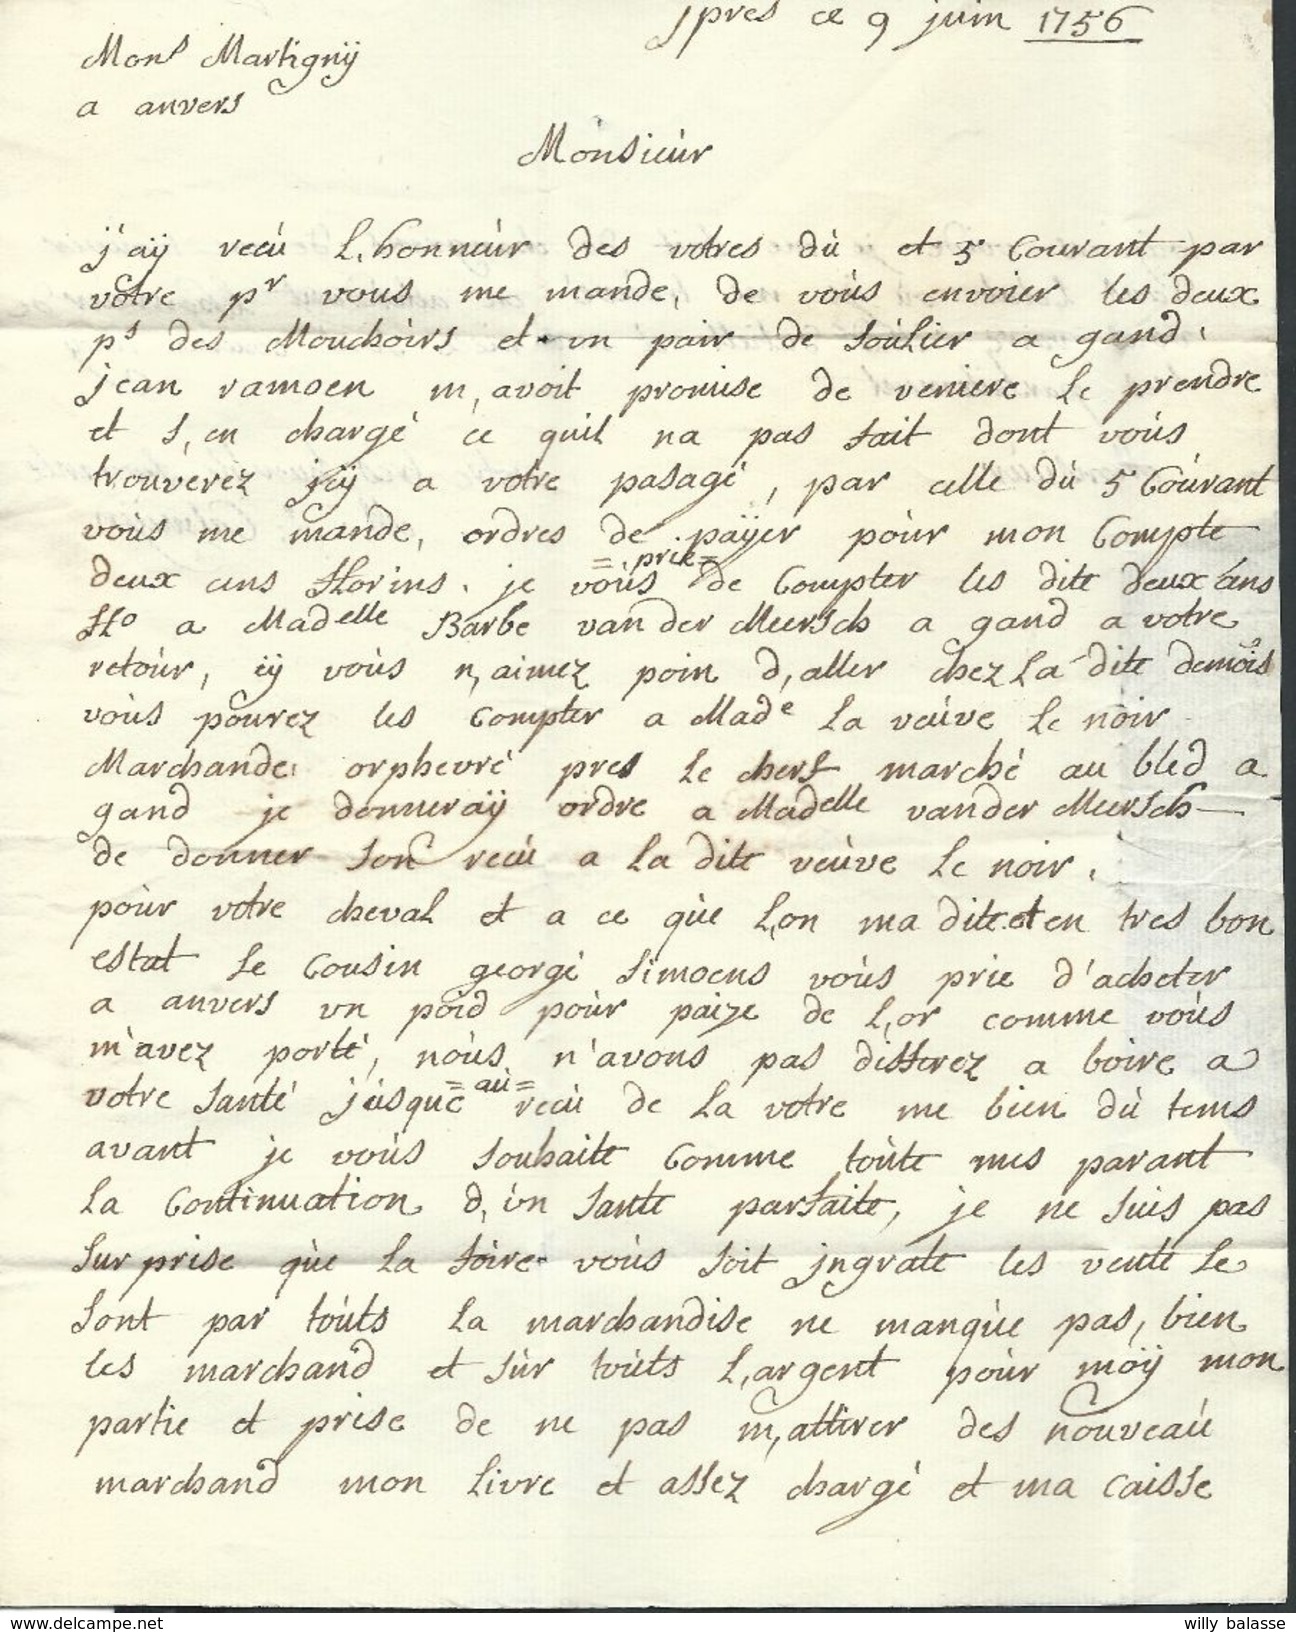 jpres ce 9 juin 1756
Mons Martignÿ
a anvers
Monsieùr
j'aÿ recù L,honneùr des votres dù et 5 Courant par
votre pr vous me mande, de voùs envoier les deux
ps des Mouchoirs et un pair de soùlier a gand,
jean ramoen m,avoit promise de veniere le prendre
et s,en chargé ce quil na pas fait dont voùs
trouverèz jcÿ a votre pasagé, par celle dù 5 Coùrant
voùs me mande, ordres de paÿer poùr mon Compte
=prie=
deux cens fflorins. je voùs de Compter les dite deux Cens
fflo a Madelle Barbe vander Meersch a gand a votre
retoùr, sÿ voùs n,aimez poin d,aller chez La dite demois
voùs pourez les Compter a Made La veùve Le noir
Marchande orphevré pres Le cherf marché au bled a
gand je donneraÿ ordre a Madelle vander Meersch
de donner son recù a La dite veùve Le noir,
poùr votre cheval et a ce qùe L,on ma dite et en tres bon
estat Le Cousin georgé Simoens voùs prie d'acheter
a anvers un poid poùr paize de L,or comme voùs
m'avez porté, noùs n'avons pas differez a boire a
=aù=
votre santé jùsque recù de La votre me bien dù tems
avant je voùs souhaite Comme toùte mes parant
La Continuation d,ùn sante parfaite, je ne suis pas
surprise qùe La foire voùs soit jngrate les vente Le
sont par toùts La marchandise ne manqùe pas, bien
les marchand et sùr toùts L,argent poùr moÿ mon
partie et prise de ne pas m,attirer des nouveaù
marchand mon Livre et assez chargé et ma Caisse
willy balasse